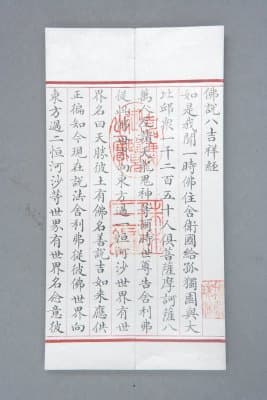 佛說八吉祥經
如是我聞一時佛住舍衛國給孤獨園與大
比邱衆一千二百五十人俱菩薩摩訶薩八
萬人 天龍鬼神尊 時世尊告舍利弗
從 東方過一恒河沙世界有世
界名曰天勝彼土有佛名善說吉如來應供
正徧知今現在說法舍利弗從彼世界向
東方過二恒河沙等世界有世界名念意彼